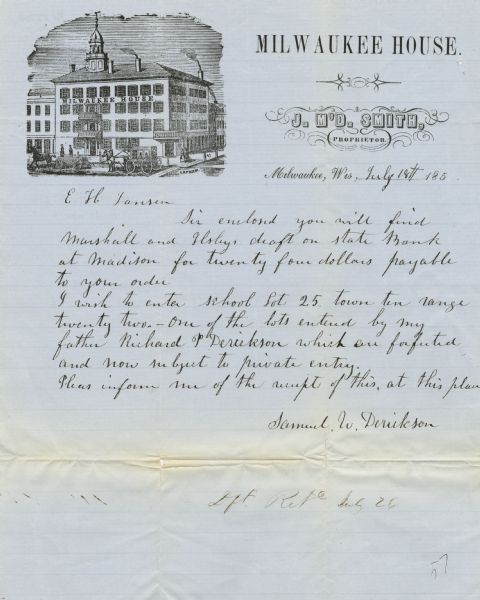 MILWAUKEE HOUSE
MILWAUKEE HOUSE.
J. McD. SMITH,
PROPRIETOR.
Milwaukee, Wis, July 18th 185
E H Jansen
Sir enclosed you will find
Marshall and Ilsleys draft on state Bank
at Madison for twenty four dollars payable
to your order
I wish to enter school Lot 25 town ten range
twenty two.- One of the lots entered by my
father Richard P Derickson which are forfeited
and now subject to private entry.
Pleas inform me of the receipt of this, at this place
Samuel. W. Derickson
July 26